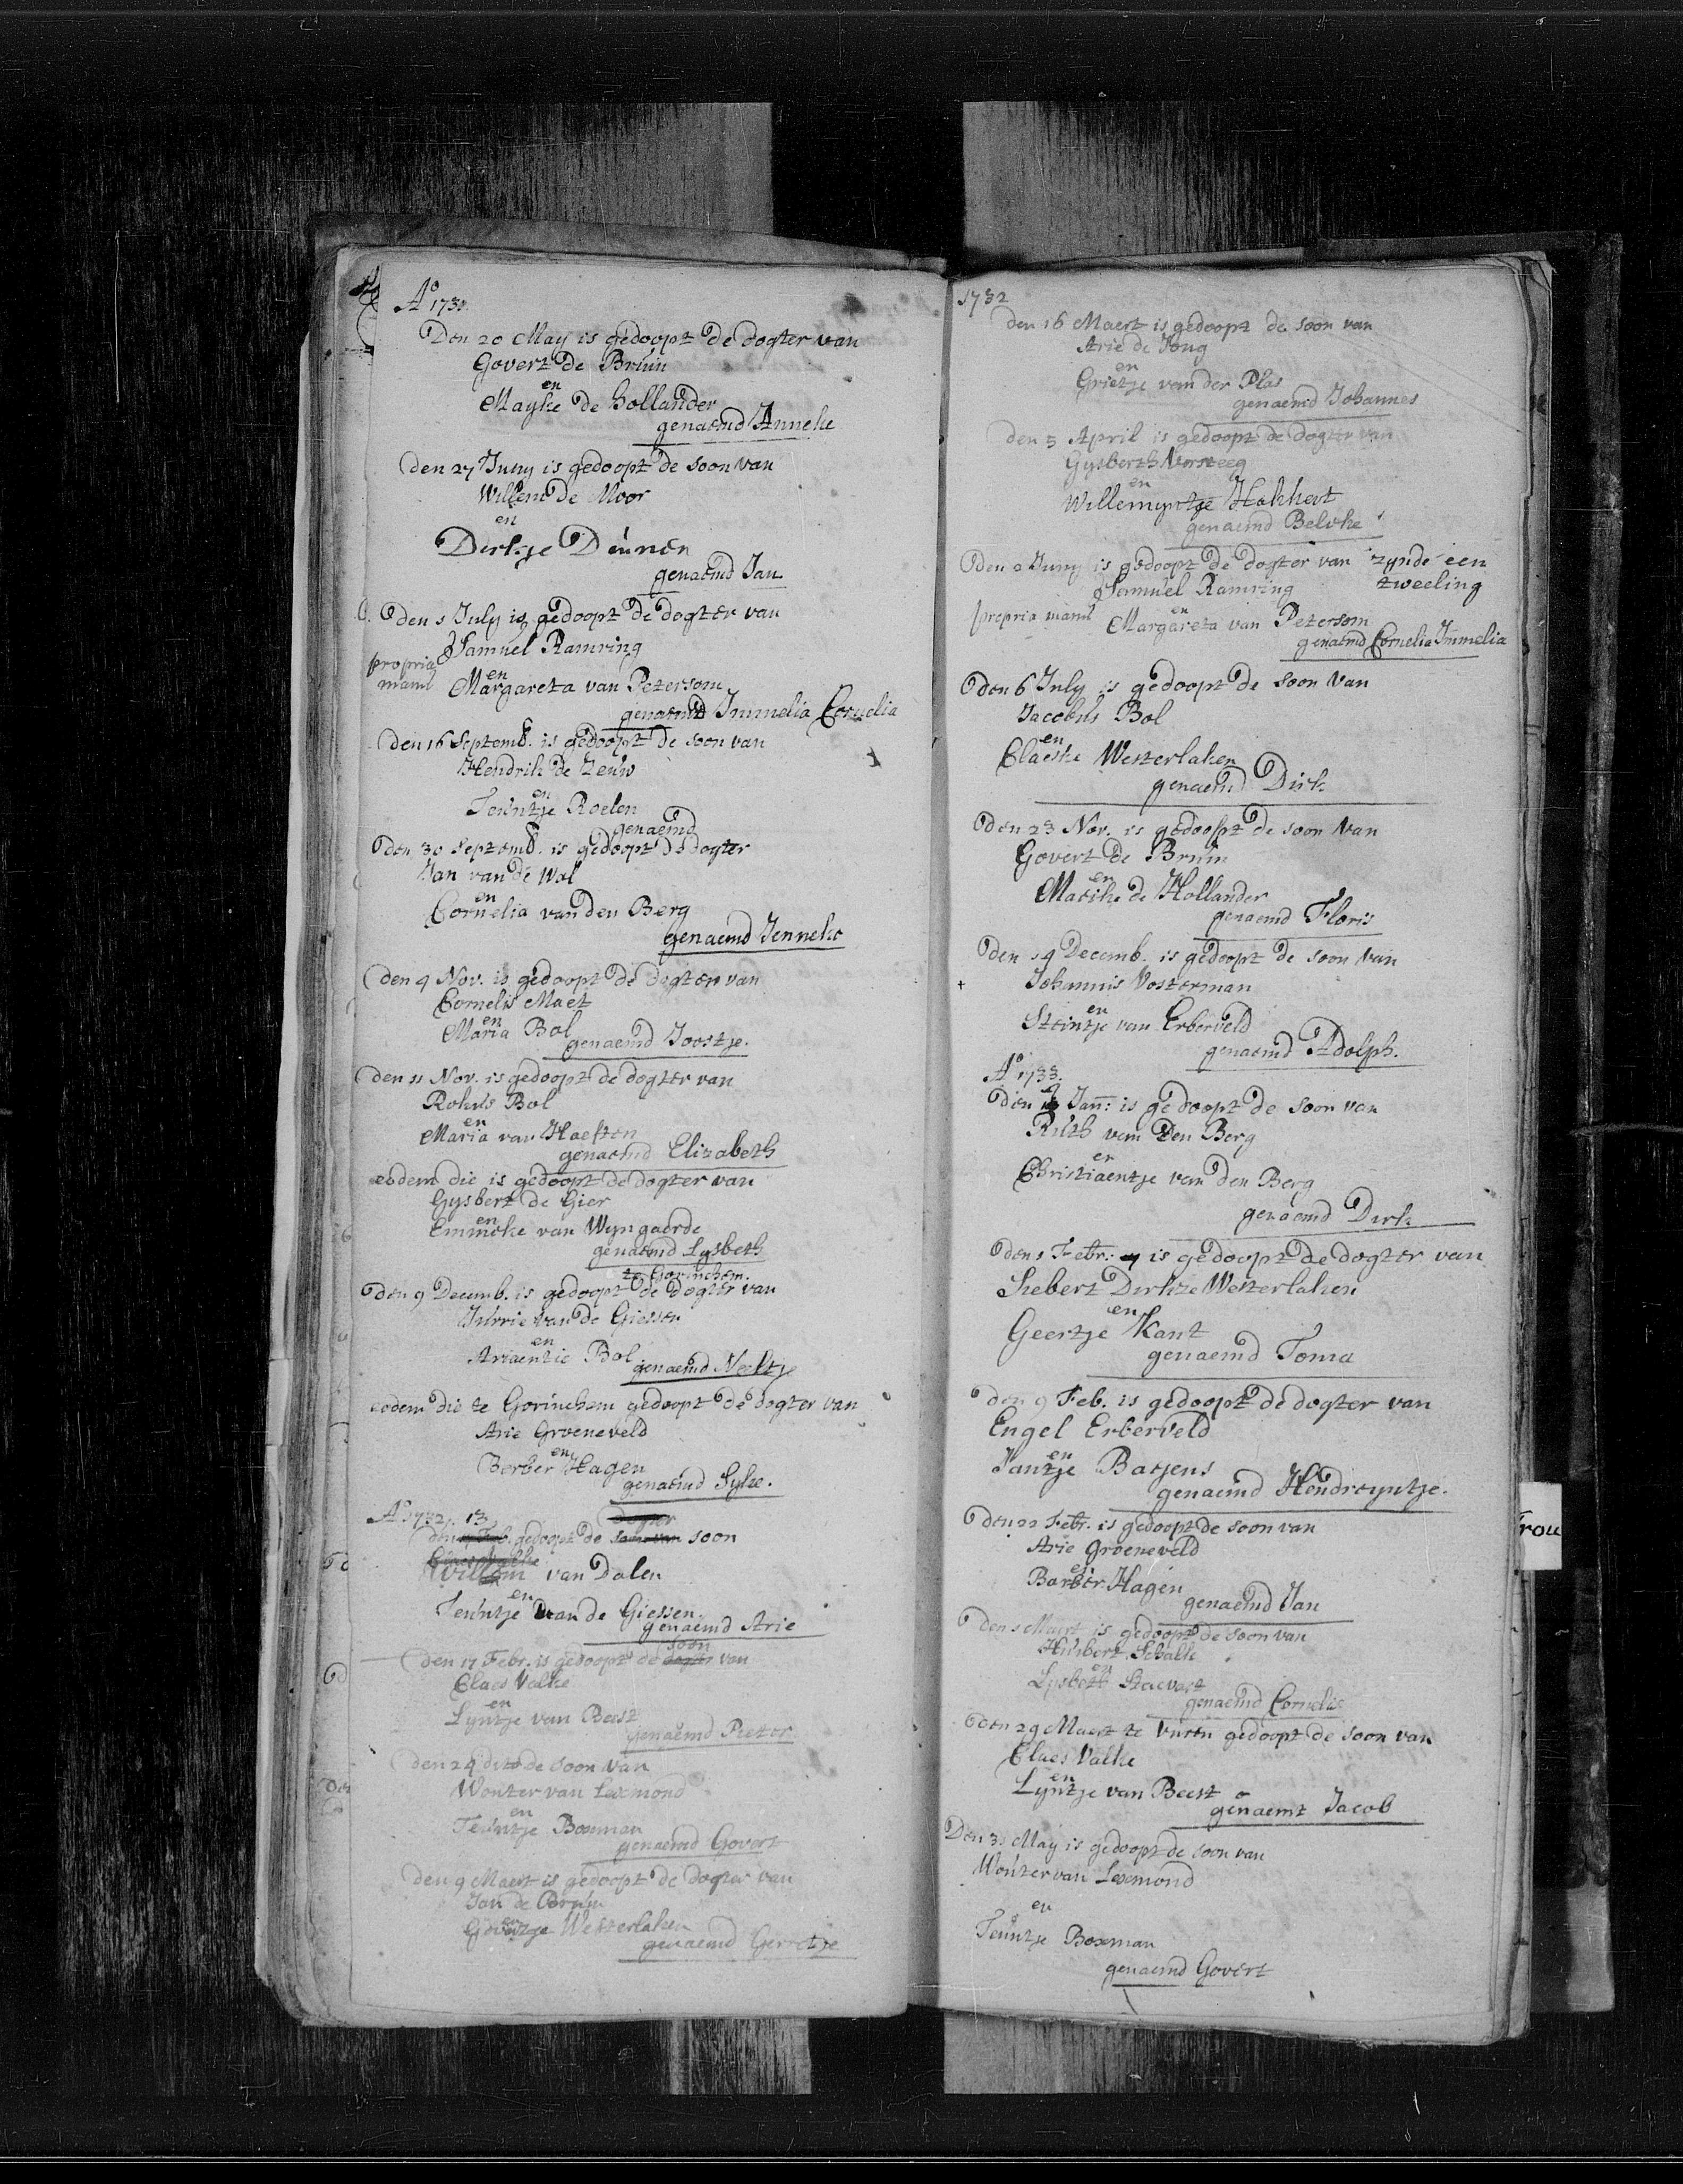 Ao 1731.
Den 20 May is gedoopt de dogter van
Govert de Bruin
en
Mayke de Hollander
genaemd Anneke
Den 27 Juny is gedoopt de soon van
Willem de Moor
en
Dirkje Deunen
genaemd Jan
Den 1 July is gedoopt de dogter van
Samuel Ramring
propria manu
en
Margareta van Petersom
genaemd Immelia Cornelia
Den 16 Septemb. is gedoopt de soon van
Hendrik de Zeuw
en
Teuntje Roelen
genaemd
Den 30 Septemb. is gedoopt de dogter
Jan van de Wal
en
Cornelia van den Berg
genaemd Jenneke
Den 4 Nov. is gedoopt de dogter van
Cornelis Maet
en
Maria Bol
genaemd Joostje.
Den 11 Nov. is gedoopt de dogter van
Rokus Bol
en
Maria van Haeften
genaemd Elizabeth
eodem die is gedoopt de dogter van
Gysbert de Gier
en
Emmeke van Wyngaerde
genaemd Lysbeth
te Gorinchem.
Den 9 Decemb. is gedoopt de dogter van
Jurrie van de Giessen
en
Ariaentie Bol
genaemd Neeltje
eodem die te Gorinchem gedoopt de dogter van
Arie Groeneveld
en
Berber Hagen
genaemd Syke.
Ao 1732. 13
dogter
den Feb. gedoopt de soon van soon
Claes Valke
Willem van Dalen
en
Teuntje van de Giessen.
genaemd Arie
soon
Den 17 Febr. is gedoopt de dogter van
Claes Valke
en
Lyntje van Beest
genaemd Pieter
Den 24 dito de soon van
Wouter van Lexmond
en
Teuntje Boxman
genaemd Govert
Den 9 Maert is gedoopt de dogter van
Jan de Bruin
en
Govertje Westerlaken
genaemd Gerretje
1732
Den 16 Maert is gedoopt de soon van
Arie de Jong
en
Grietje van der Plas
genaemd Johannes
Den 5 April is gedoopt de dogter van
Gysberth Versteeg
en
Willemyntje Hakkert
genaemd Belike
Den 2 Juny is gedoopt de dogter van zynde een
Samuel Ramring tweeling
propria manu
en
Margareta van Petersom
genaemd Cornelia Immelia
Den 6 July is gedoopt de soon van
Jacobus Bol
en
Claeske Westerlaken
genaemd Dirk
Den 23 Nov. is gedoopt de soon van
Govert de Bruin
en
Maeike de Hollander
genaemd Floris
Den 14 Decemb. is gedoopt de soon van
Johannis Vosterman
en
Steintje van Erberveld
genaemd Adolph.
Ao 1733.
Den Jan: is gedoopt de soon van
Ruth van den Berg
en
Christiaentje van den Berg
genaemd Dirk
Den 1 Febr. is gedoopt de dogter van
Siebert Dirkze Westerlaken
en
Geertje Kant
genaemd Toma
Den 9 Feb. is gedoopt de dogter van
Engel Erberveld
en
Jantje Baejens
genaemd Hendreyntje.
Den 22 Febr. is gedoopt de soon van
Arie Groeneveld
en
Barber Hagen
genaemd Jan
Den 1 Maert is gedoopt de soon van
Huibert Schalk
en
Lysbeth Staevast
genaemd Cornelis
Den 29 Maert te Vuren gedoopt de soon van
Claes Valke
en
Lyntje van Beest
genaemt Jacob
Den 31 May is gedoopt de soon van
Wouter van Lexmond
en
Teuntje Boxman
genaemd Govert
Trou